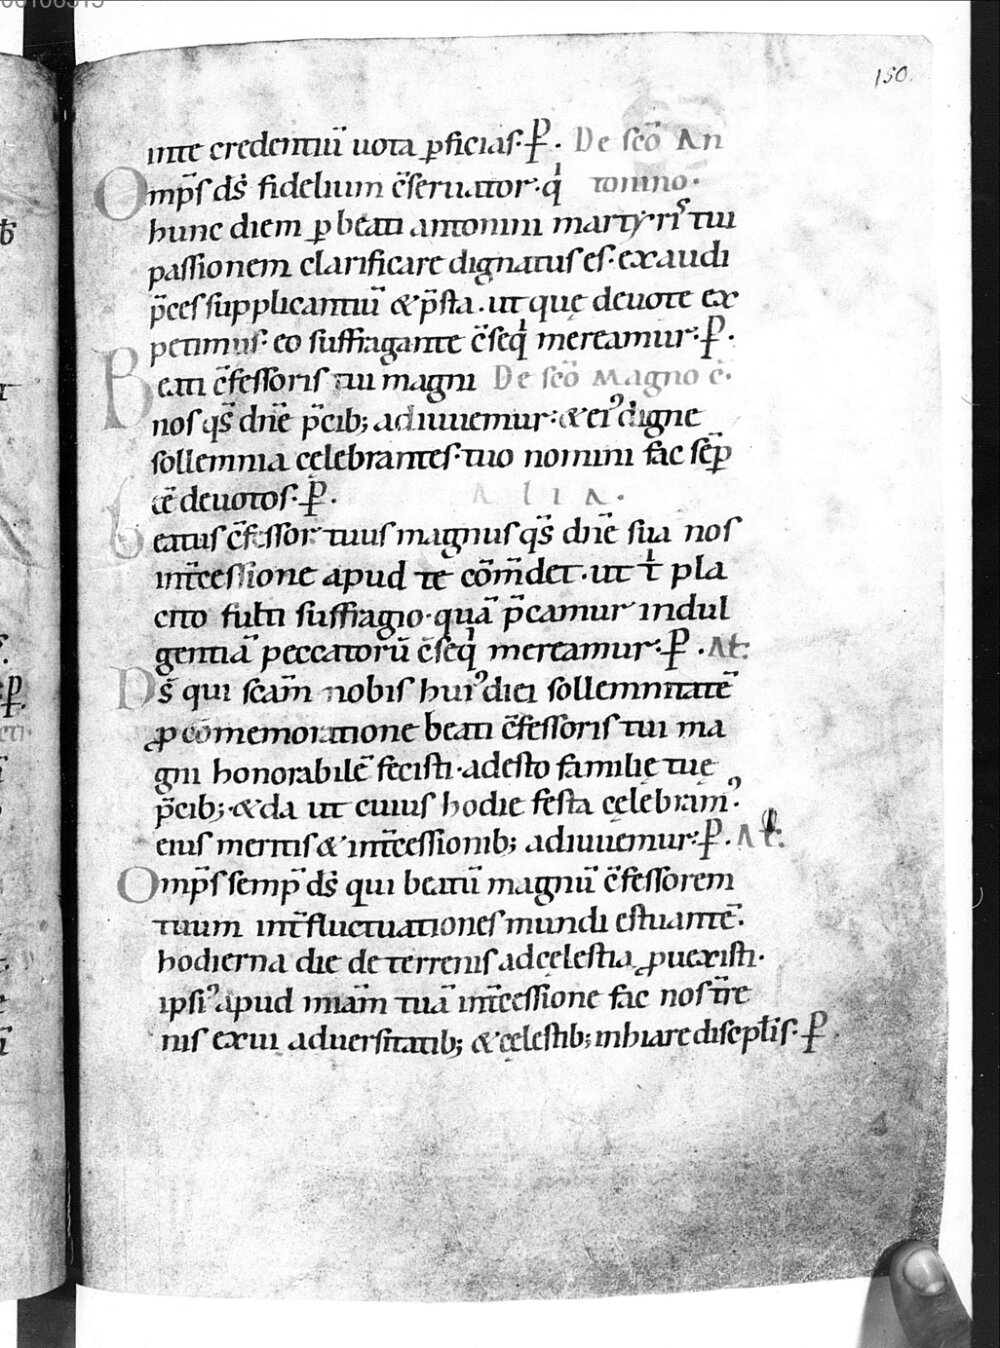 150.
inte credentiū uota ꝑficias·ꝑ. De sc̄o An
Omp̄s ds̄ fidelium c̄seruator· q̇ tonino.
hunc diem ꝑ beati antonini martyriꝰ tui
passionem clarificare dignatus es· exaudi
p̄ces supplicantiū & p̄sta. ut que deuote ex
petimus· eo suffragante c̄seq̇ mereamur· P.
Beati c̄fessoris tui magni De sc̄o magno c̄.
nos qs̄ dn̄e p̄cib; adiuuemur· & eiꝰ digne
sollemnia cęlebrantes· tuo nomini fac sēp
ee̅ deuotos· P. ALIA.
beatus c̄fessor tuus magnus qs̄ dn̄e sua nos
int̄cessione apud te com̄det· ut t̄ pla
cito fulti suffragio· quā p̄camur indul
gentiā peccatorū c̄seq̇ mereamur· P. Al:
Ds̄ qui scam̄ nobis huiꝰ diei sollemnitatē
ꝓ comemoratione beati c̄fessoris tui ma
gni honorabilē fecisti· adesto familię tuę
p̄cib; & da ut cuius hodie festa cęlebramꝰ·
eius meritis & int̄cessionib; adiuuemur· P. Al:
Omp̄s semp̄ ds̄ qui beatū magnū c̄fessorem
tuum int̄ fluctuationes mundi estuantē·
hodierna die de terrenis ad cęlestia ꝓuexisti·
ipsiꝰ apud miam̄ tuā int̄cessione fac nos t̄re
nis exui aduersitatib; & cęlestib; inhiare discipl̄is· P.